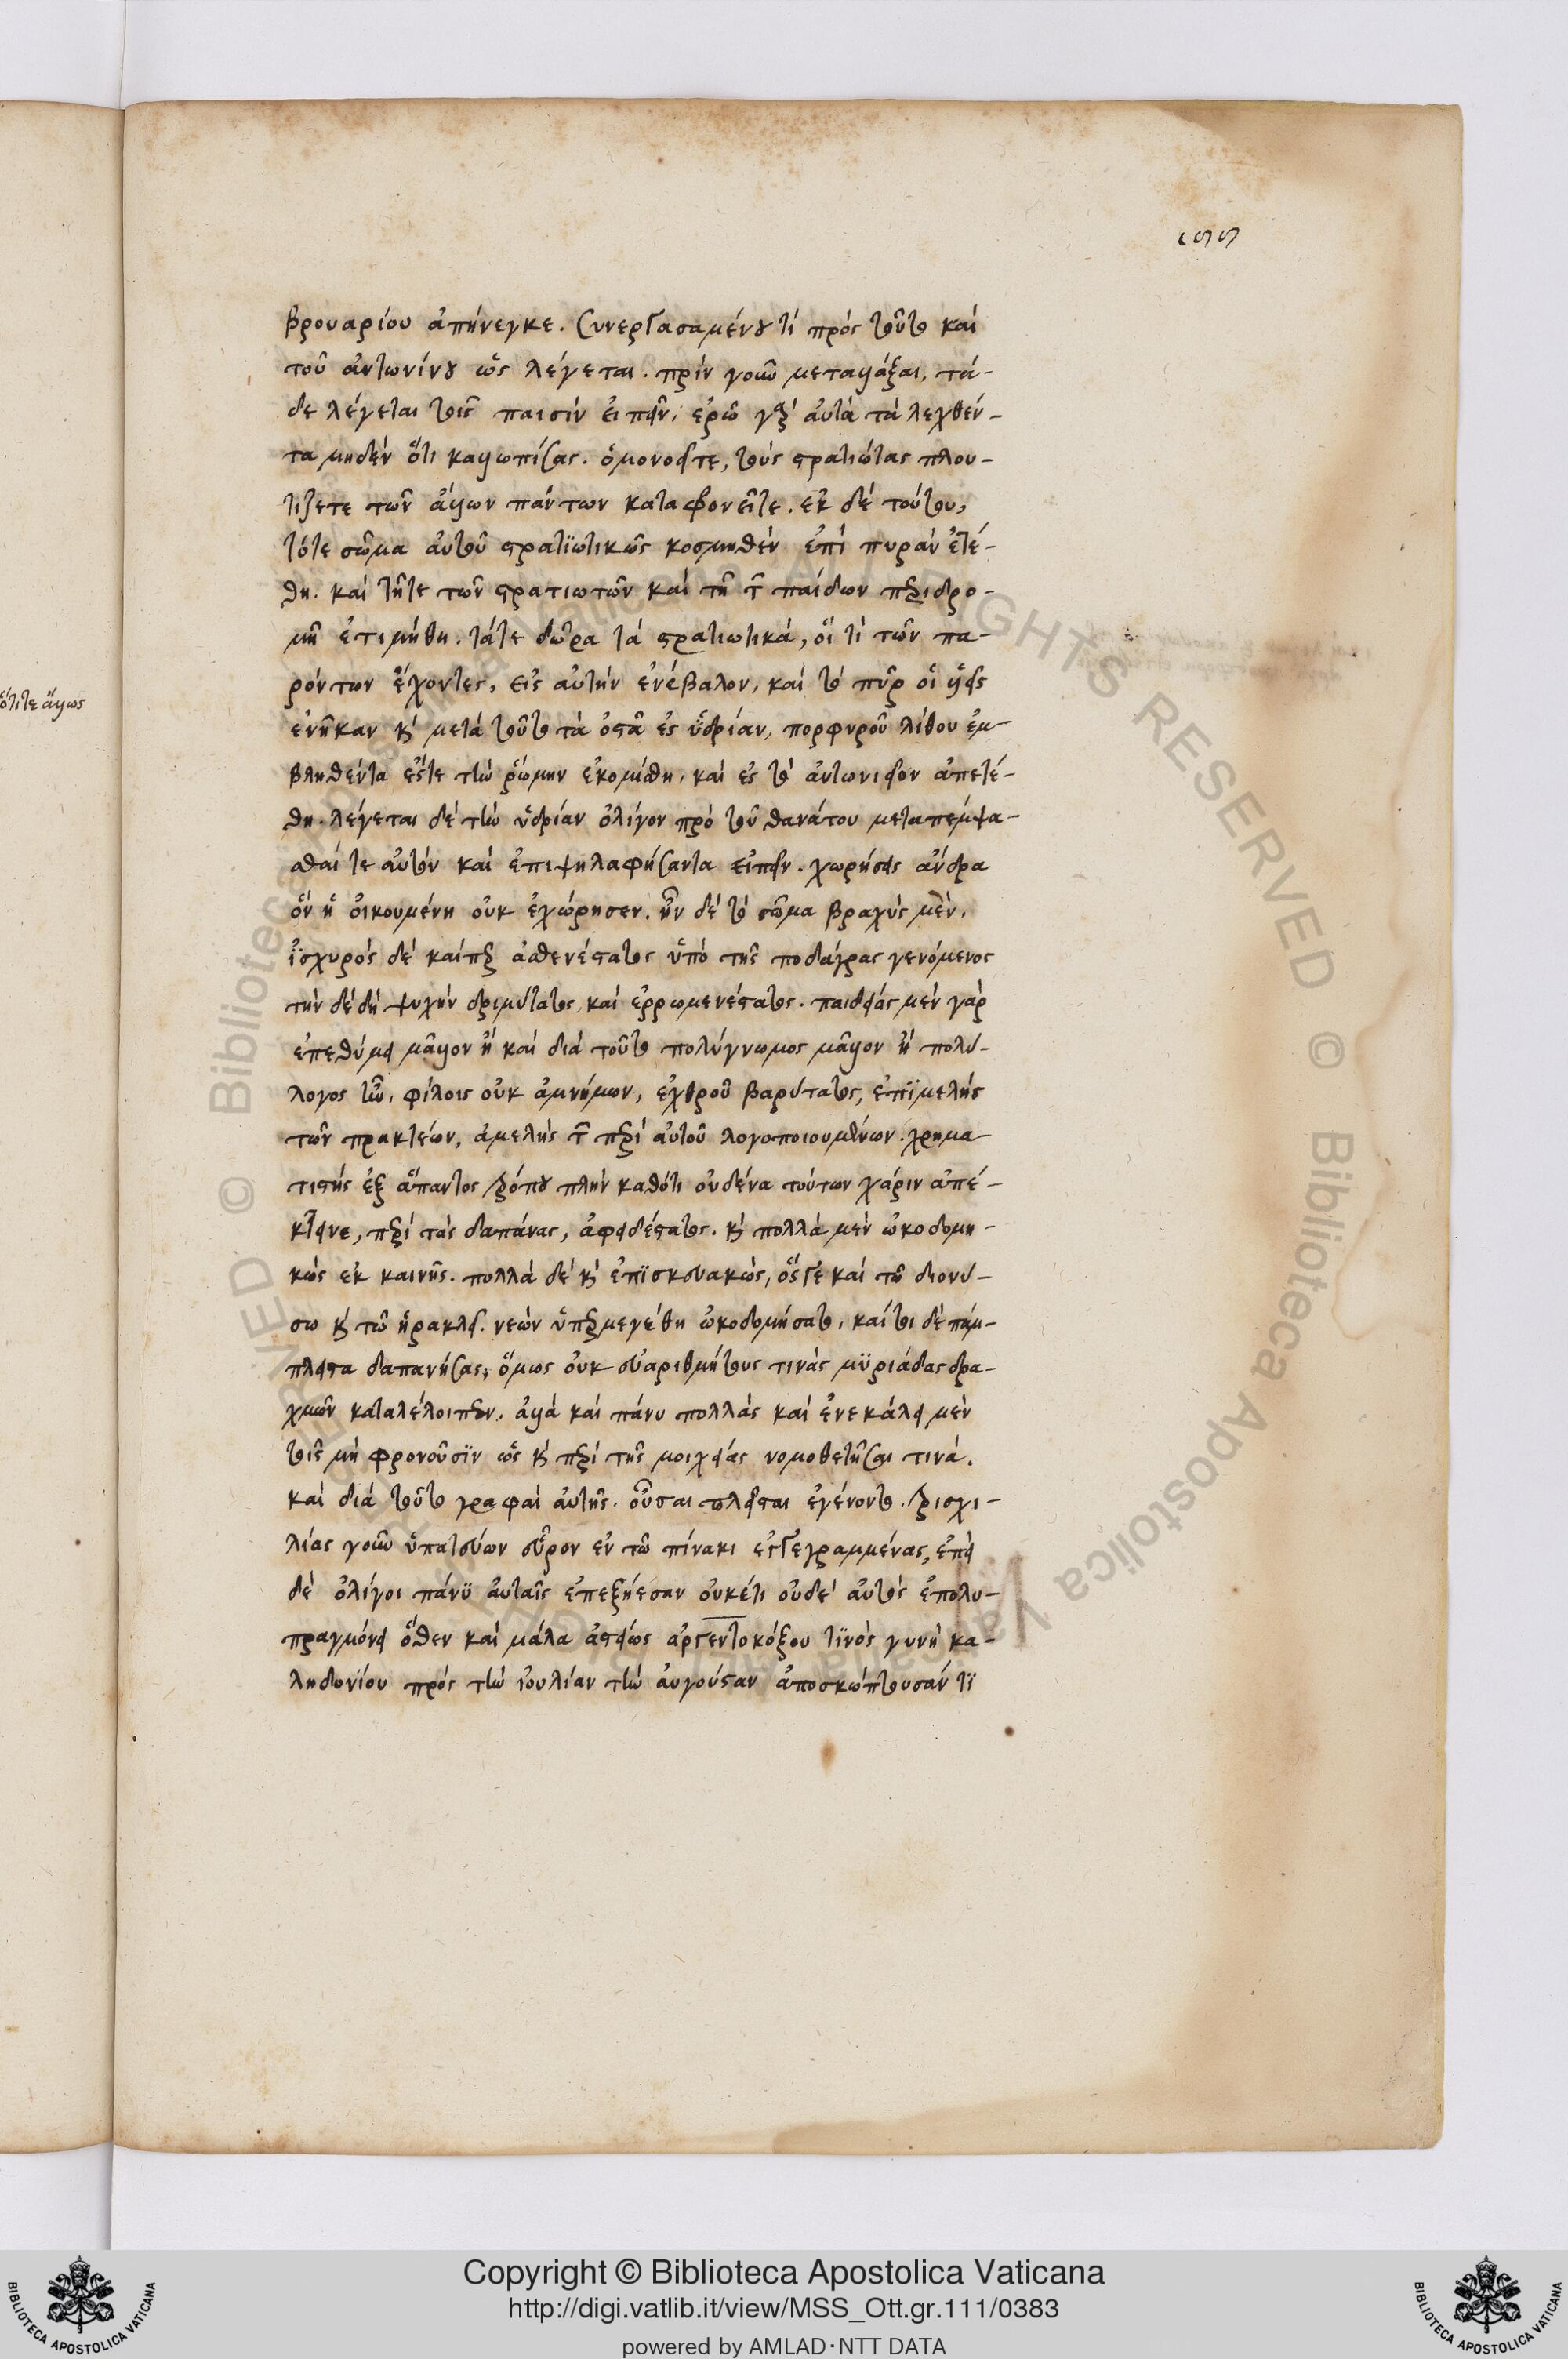 ςςς
βρουαρίου ἀπήνεγκε. συνεργασαμένου τί πρός τοῦτο καί
τοῦ ἀντωνίνου ὥς λέγεται. πρίν γοῦν μεταλλάξαι, τά-
δε λέγεται τοῖς παισίν εἰπεῖν, ἐρῶ γάρ αὐτά τά λεχθέν-
τα μηδέν ὅτι καλλωπίσας. ὁμονοεῖτε, τούς στρατιώτας πλου-
τίζετε τῶν ἄλλων πάντων καταφρονεῖτε. ἐκ δέ τούτου,
τότε σῶμα αὐτοῦ στρατϊωτικῶς κοσμηθέν ἐπί πυράν ἐτέ-
θη. καί τῆτε τῶν στρατιωτῶν καί τῆ τῶν παίδων περιδρο-
μῆ ἐτιμήθη. τάτε δῶρα τά στρατιωτικά, οἵ τί τῶν πα-
ρόντων ἔχοντες, εἰς αὐτήν ἐνέβαλον, καί τό πῦρ οἱ υἱεῖς
ἐνῆκαν καί μετά τοῦτο τά ὀστᾶ ἐς ὑδρίαν, πορφυροῦ λίθου ἐμ-
βληθέντα ἔςτε τήν ῥώμην ἐκομίσθη, καί ἐς τό ἀντωνιεῖον ἀπετέ-
θη. λέγεται δέ τήν ὑδρίαν ὀλίγον πρό τοῦ θανάτου μεταπέμψα-
σθαί τε αὐτόν καί ἐπιψηλαφήσαντα εἰπεῖν. χωρήσεις ἄνδρα
ὅν ἡ οἰκουμένη οὐκ ἐχώρησεν. ἦν δέ τό σῶμα βραχύς μέν,
ἰσχυρός δέ καίπερ ἀσθενέστατος ὑπό τῆς ποδάγρας γενόμενος
τήν δέδή ψυχήν δριμύτατος, καί ἐρρωμενέστατος. παιδείας μέν γάρ
ἐπεθύμει μᾶλλον ἤ καί διά τοῦτο πολύγνωμος μᾶλλον ἤ πολύ-
λογος ἦν, φίλοις οὐκ ἀμνήμων, ἐχθροῦ βαρύτατος, ἐπϊμελής
τῶν πρακτέων, ἀμελής τῶν περί αὐτοῦ λογοποιουμένων. χρημα-
τιστής ἐξ ἅπαντος τρόπου πλήν καθότι οὐδένα τούτων χάριν ἀπέ-
κτεινε, περί τάς δαπάνας, ἀφειδέστατος. καί πολλά μέν ὠκοδομη-
κώς ἐκ καινῆς. πολλά δέ καί ἐπϊσκευακώς, ὅςγε καί τῶ διονύ-
σω καί τῶ ἡρακλεῖ. νεών ὑπερμεγέθη ὠκοδομήσατο, καίτοι δέ πάμ-
πλειστα δαπανήσας, ὅμως οὐκ εὐαριθμήτους τινάς μϋριάδας δρα-
χμῶν καταλέλοιπεν. ἀλλά καί πάνυ πολλάς καί ἐνεκάλει μέν
τοῖς μή φρονοῦσϊν ὥς καί περί τῆς μοιχείας νομοθετῆσαι τινά.
καί διά τοῦτο γραφαί αὐτῆς. οὖσαι πλεῖσται ἐγένοντο. τρισχι-
λίας γοῦν ὑπατεύων εὗρον ἐν τῶ πίνακι ἐγγεγραμμένας, ἐπεί
δέ ὀλίγοι πάνϋ αὐταῖς ἐπεξήεσαν οὐκέτι οὐδέ αὐτός ἐπολυ-
πραγμόνει ὅθεν καί μάλα ἀστείως ἀργεντοκόξου τϊνός γυνή κα-
ληδονίου πρός τήν ἰουλίαν τήν αὐγούσταν ἀποσκώπτουσάν τϊ
ὅτι τε ἄλλως
Copyright © Biblioteca Apostolica Vaticana
http://digi.vatlib.it/view/MSS_Ott.gr.111/0383
powered by AMLAD·NTT DATA